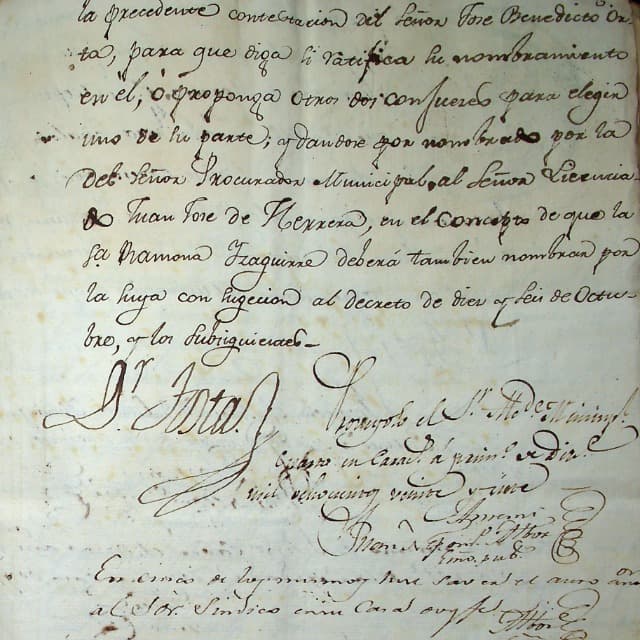 la precedente contestacion del Señor Jose Benedicto Or-
ta, para que diga si ratifica su nombramiento
en el, ó proponga otros dos conjueces para elegir
uno de su parte; y dandose por nombrado por la
del Señor Procurador Municipal, al Señor Licencia-
do Juan Jose de Herrera, en el concepto de que la
Sa. Ramona Yzaguirre deberá tambien nombrar por
la suya con sugecion al decreto de diez y seis de Octu-
bre, y los subsiguientes
Dr.
Proveyolo el Sr.
quarto en Carac.s á primo. de Dice.
mil ochocientos veinte y siete
Antemi
En cinco de hice saver el auto
al Sor. Sindico en su Casa doy fe